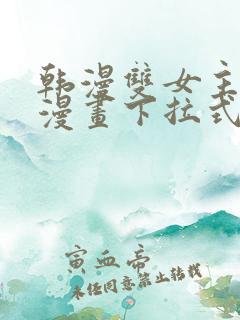 韩漫雙女主
漫畫下拉式
寅血帝
未经同意禁止转载